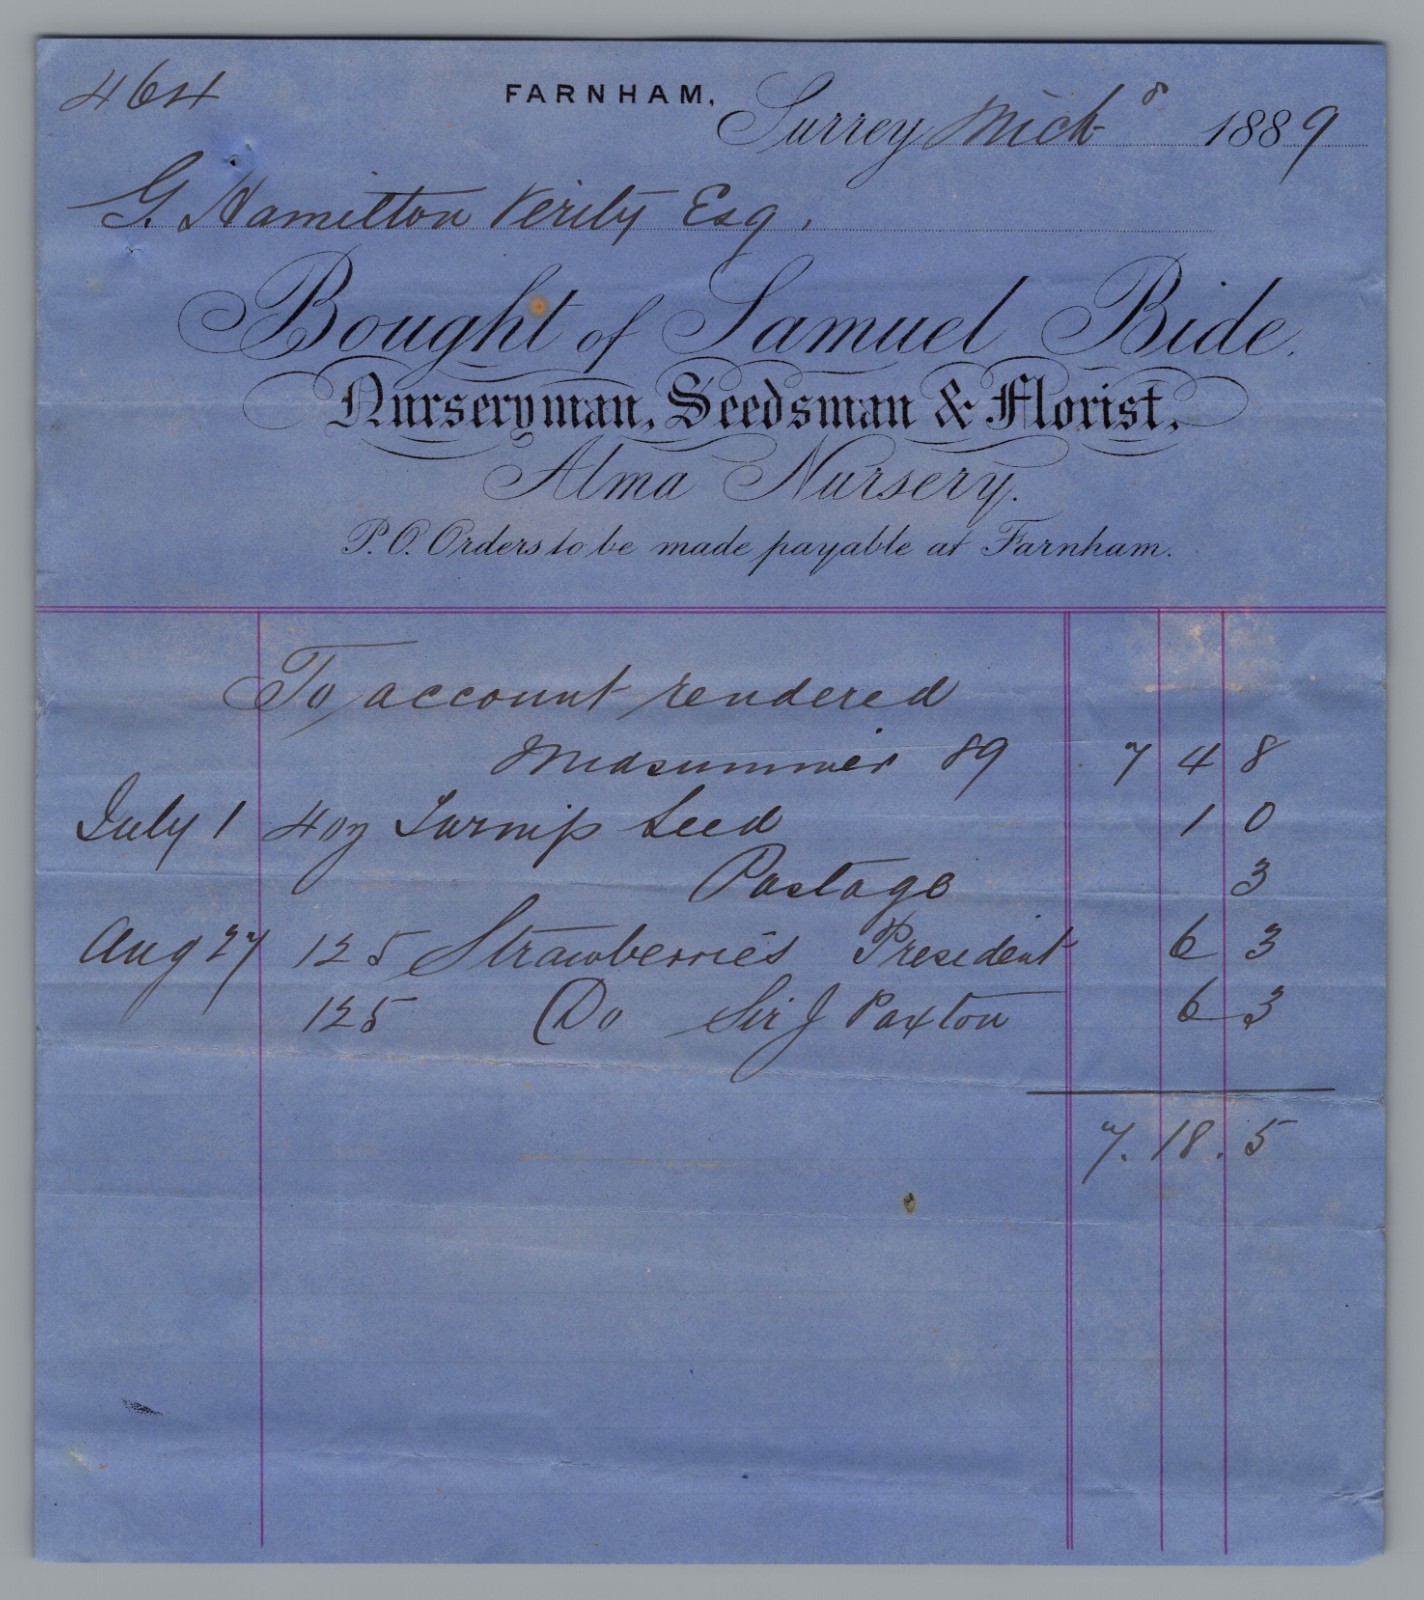 464
FARNHAM, Surrey Mich⁸ 1889
G. Hamilton Verity Esq.
Bought of Samuel Bide.
Nurseryman, Seedsman & Florist,
Alma Nursery.
P.O. Orders to be made payable at Farnham.
To account rendered
Midsummer 89 7 4 8
July 1 4oz Turnip Seed 1 0
Postage 3
Aug 27 125 Strawberries President 6 3
125 Do Sir J Paxton 6 3
7. 18. 5